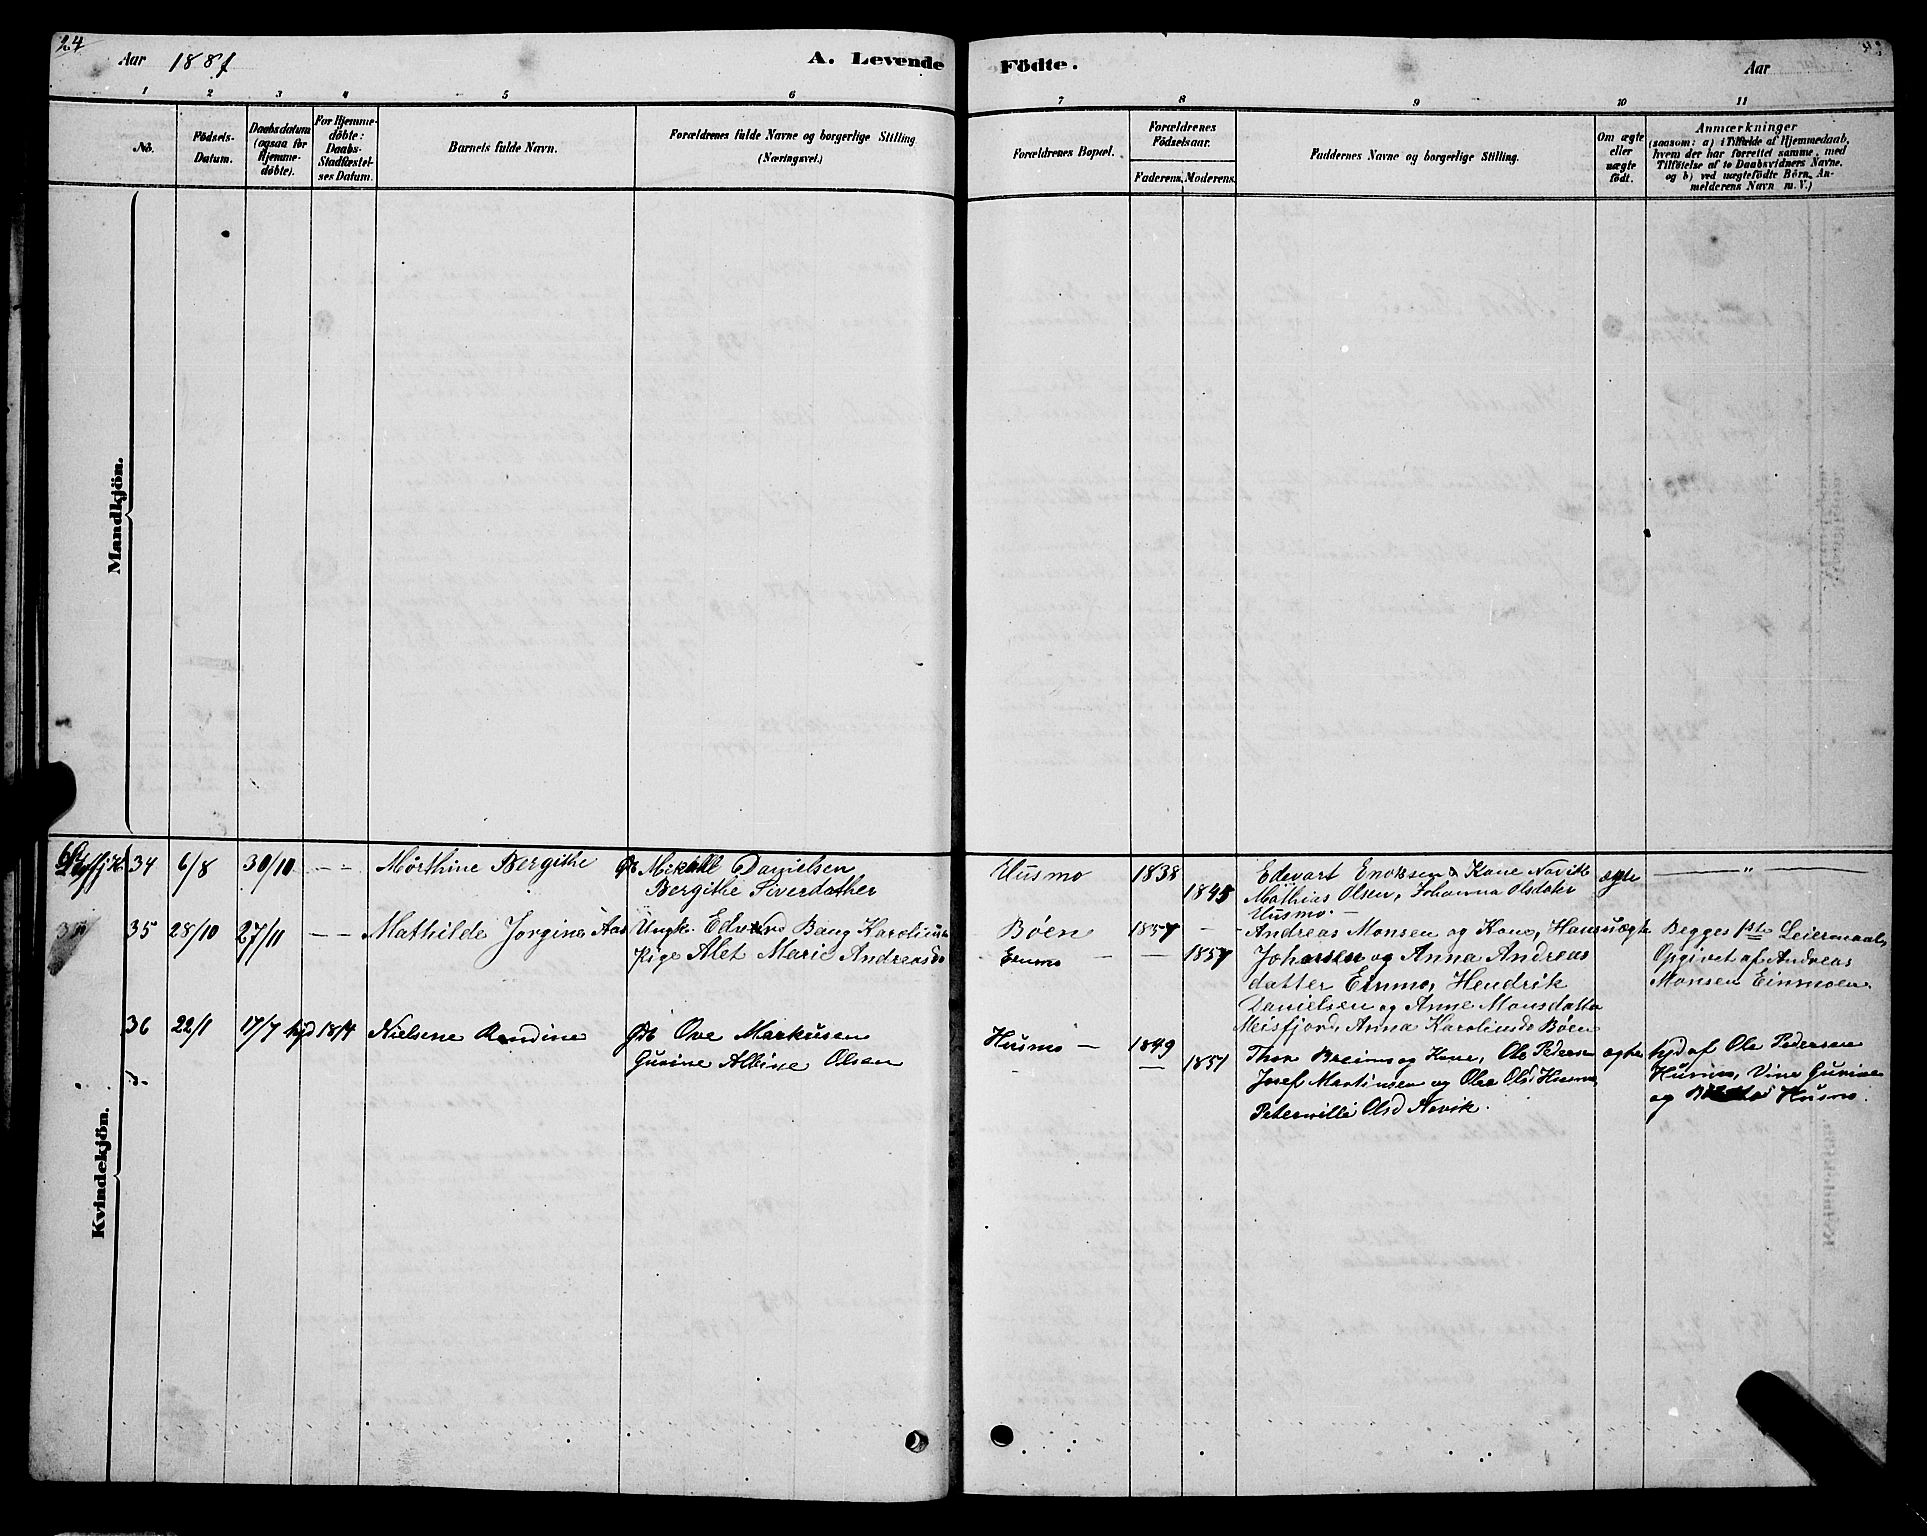 24
Aar 1881
A. Levende Födte.
Aar
1 2 3 4 5 6 7 8 9 10 11
No.
Födsels-
Datum.
Daabsdatum
(ogsaa for
Hjemme-
døbte).
For Hjemme-
døbte:
Daabs-
Stadfæstel-
ses Datum.
Barnets fulde Navn.
Forældrenes fulde Navne og borgerlige Stilling
(Næringsvei.)
Forældrenes Bopæl.
Forældrenes
Födselsaar.
Faderens. Moderens.
Faddernes Navne og borgerlige Stilling.
Om ægte
eller
uægte
födt.
Anmærkninger
(saasom: a) i Tilfælde af Hjemmedaab,
hvem der har forrettet samme, med
Tilföielse af to Daabsvidners Navne,
og b) ved uægtefödte Börn, An-
melderens Navn m. V.)
Mandkjön.
Kvindekjön.
34 6/8 30/10 - - Mörthine Bergithe
Mikal Danielsen
Bergithe Siverdatter
Husmo 1838
1845
Edevart Enoksen & Kone Novik
Mathias Olsen, Johanna Olsdater
Husmo. -
ægte - " -
35 28/10 27/11 - - Mathilde Jorgine Aas
Ungk. Edvard Bang Karoliussen
Pige Alet Marie Andreasd
Bøen 1857 -
Einmo - - 1857
Andreas Monsen og Kone, Hans
Johansen og Anna Andreas
datter Einmo, Hendrik
Danielsen og Anne Monsdatter
Meisfjord, Anna Karolinsd Bøen
uægte
Begges 1ste Leiermaal,
Opgivet af Andreas
Monsen Einmoen
36 22/1 17/7 hjd 18/4 Nielsine Randine
Ove Markusen
Gurine Albine Olsen
Husmo - 1849
- 1851
Thor Breims og Kone, Ole Pedersen
Josef Martinsen og Olea Olsd Husmo
Peternille Olsd Novik.
ægte
hjd af Ole Pedersen
Husmo, Gurine
og Husmo.